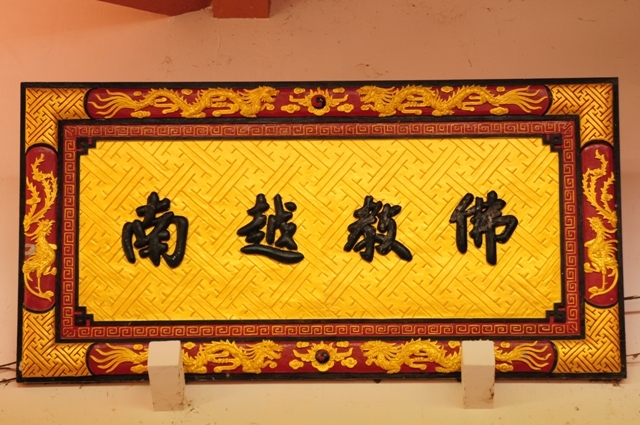 佛教越南